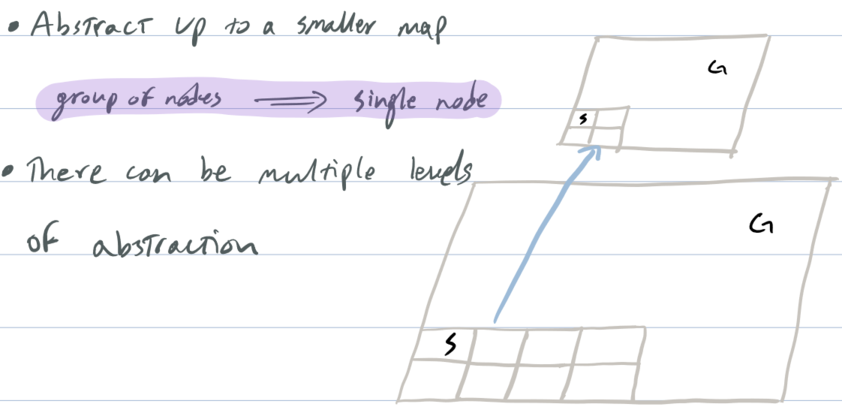 • Abstract up to a smaller map
group of nodes ⟹ single node
• There can be multiple levels
of abstraction
G
S
G
S